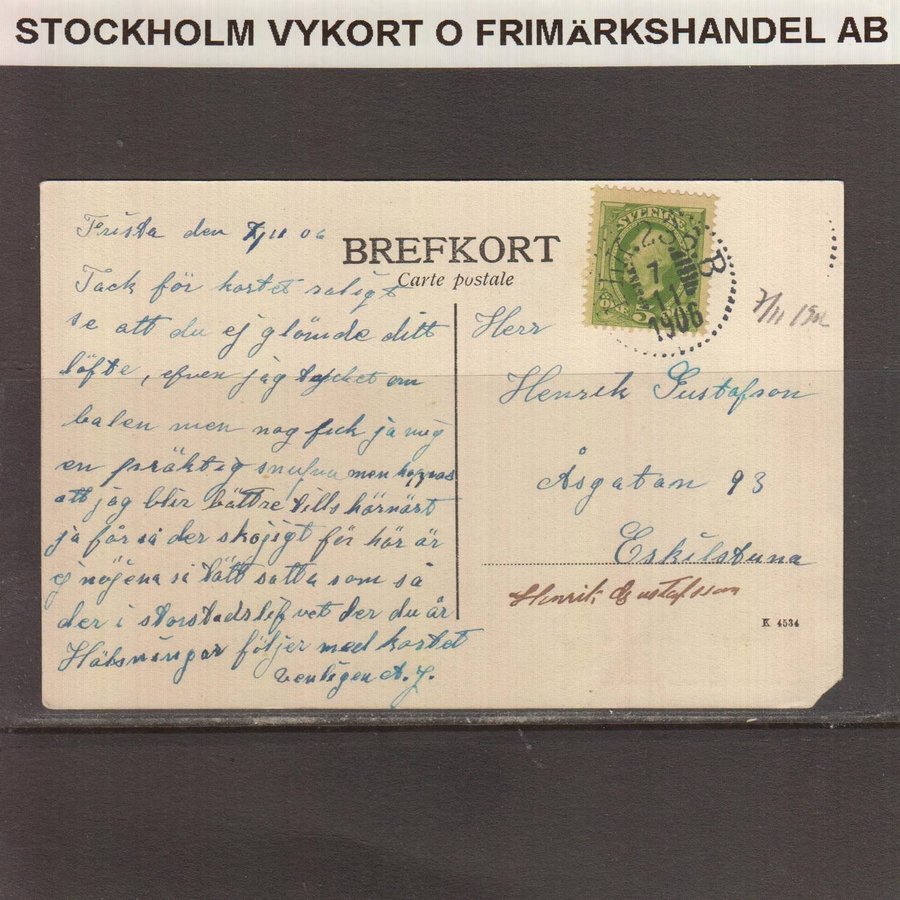 STOCKHOLM VYKORT O FRIMÄRKSHANDEL AB
Frista den 7/11 06
BREFKORT
Carte postale
Tack för kortet roligt
se att du ej glömde ditt
löfte, efven jag tycket om
balen men nog fick ja mig
en präktig snufva men hoppas
att jag blir bättre tills
ja får så der skojigt för här är
ej nöjena si tätt satta som så
der i storstadslifvet der du är
Hälsningar följer med kortet
venligen A. J.
SVERIGE
PKXP. 233 B
7
11
1906
7/11 1906
Herr
Henrik Gustafson
Åsgatan 93
Eskilstuna
Henrik Gustafsson
K 4534